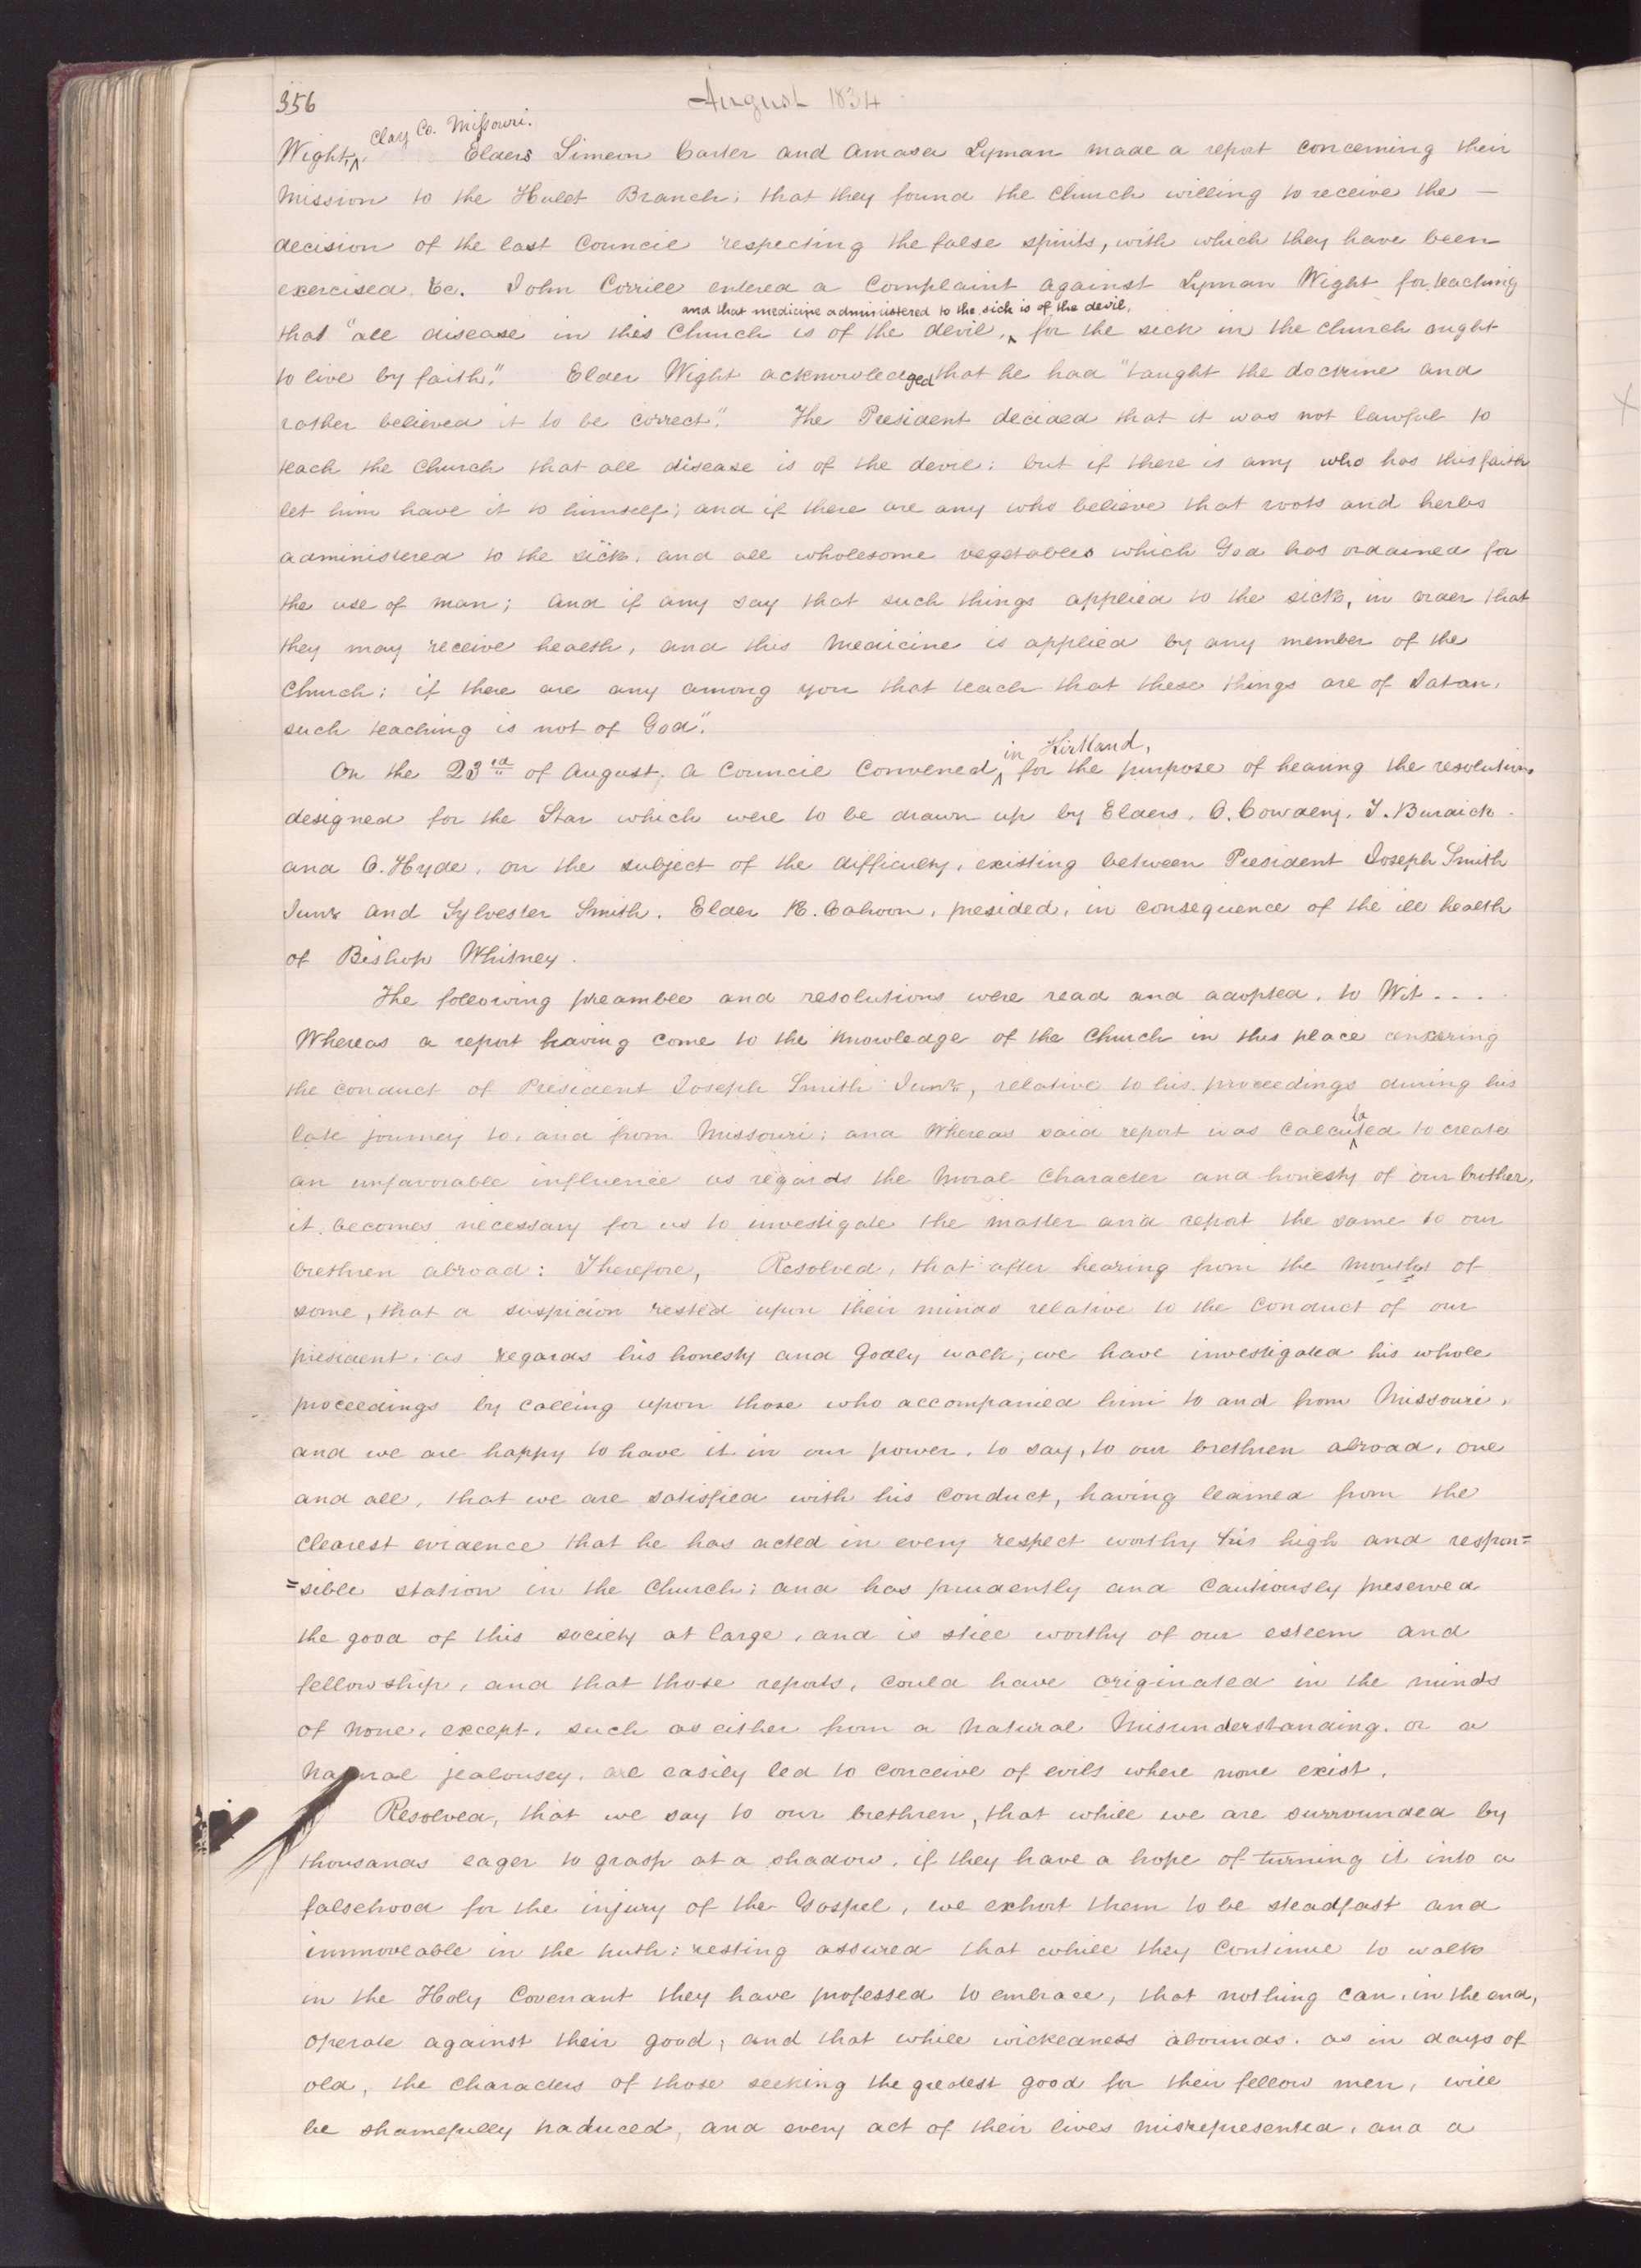 356
August 1834
Clay Co. Missouri.
Wight,^ Elders Simeon Carter and Amasa Lyman made a report concerning their
mission to the Hulet Branch; that they found the Church willing to receive the —
decision of the last Council respecting the false spirits, with which they have been
exercised &c. John Corrill entered a complaint against Lyman Wight for teaching
and that medicine administered to the sick is of the devil,
that "all disease in this Church is of the devil, ^ for the sick in the church ought
to live by faith." Elder Wight acknowledged that he had "taught the doctrine and
rather believed it to be correct". The President decided that it was not lawful to
teach the Church that all disease is of the devil; but if there is any who has this faith
let him have it to himself; and if there are any who believe that roots and herbs
administered to the sick, and all wholesome vegetables which God has ordained for
the use of man; and if any say that such things applied to the sick, in order that
they may receive health, and this medicine is applied by any member of the
Church; if there are any among you that teach that these things are of Satan,
such teaching is not of God".
in Kirtland,
On the 23rd of August, a Council convened, ^ for the purpose of hearing the resolutions
designed for the Star which were to be drawn up by Elders, O. Cowdery, T. Burdick
and O. Hyde, on the subject of the difficulty, existing between President Joseph Smith
Junr and Sylvester Smith. Elder R. Cahoon, presided, in consequence of the ill health
of Bishop Whitney.
The following preamble and resolutions were read and adopted, to Wit. . . .
Whereas a report having come to the knowledge of the Church in this place
the conduct of President Joseph Smith Junr, relative to his proceedings during his
la
late journey to, and from Missouri; and Whereas said report was calcu^ted to create
an unfavorable influence as regards the moral character and honesty of our brother,
it becomes necessary for us to investigate the matter and report the same to our
brethren abroad: Therefore, Resolved, that after hearing from the mouths of
some, that a suspicion rested upon their minds relative to the conduct of our
president, as regards his honesty and Godly walk, we have investigated his whole
proceedings by calling upon those who accompanied him to and from Missouri,
and we are happy to have it in our power, to say, to our brethren abroad, one
and all, that we are satisfied with his conduct, having learned from the
clearest evidence that he has acted in every respect worthy his high and respon=
=sible station in the Church; and has prudently and cautiously preserved
the good of this society at large, and is still worthy of our esteem and
fellowship, and that those reports, could have originated in the minds
of none, except, such as either from a natural misunderstanding, or a
natural jealousey, are easily led to conceive of evils where none exist.
Resolved, that we say to our brethren, that while we are surrounded by
thousands eager to grasp at a shadow, if they have a hope of turning it into a
falsehood for the injury of the Gospel, we exhort them to be steadfast and
immoveable in the truth; resting assured that while they continue to walk
in the Holy Covenant they have professed to embrace, that nothing can, in the end,
operate against their good; and that while wickedness abounds, as in days of
old, the characters of those seeking the greatest good for their fellow men, will
be shamefully traduced, and every act of their lives misrepresented, and a